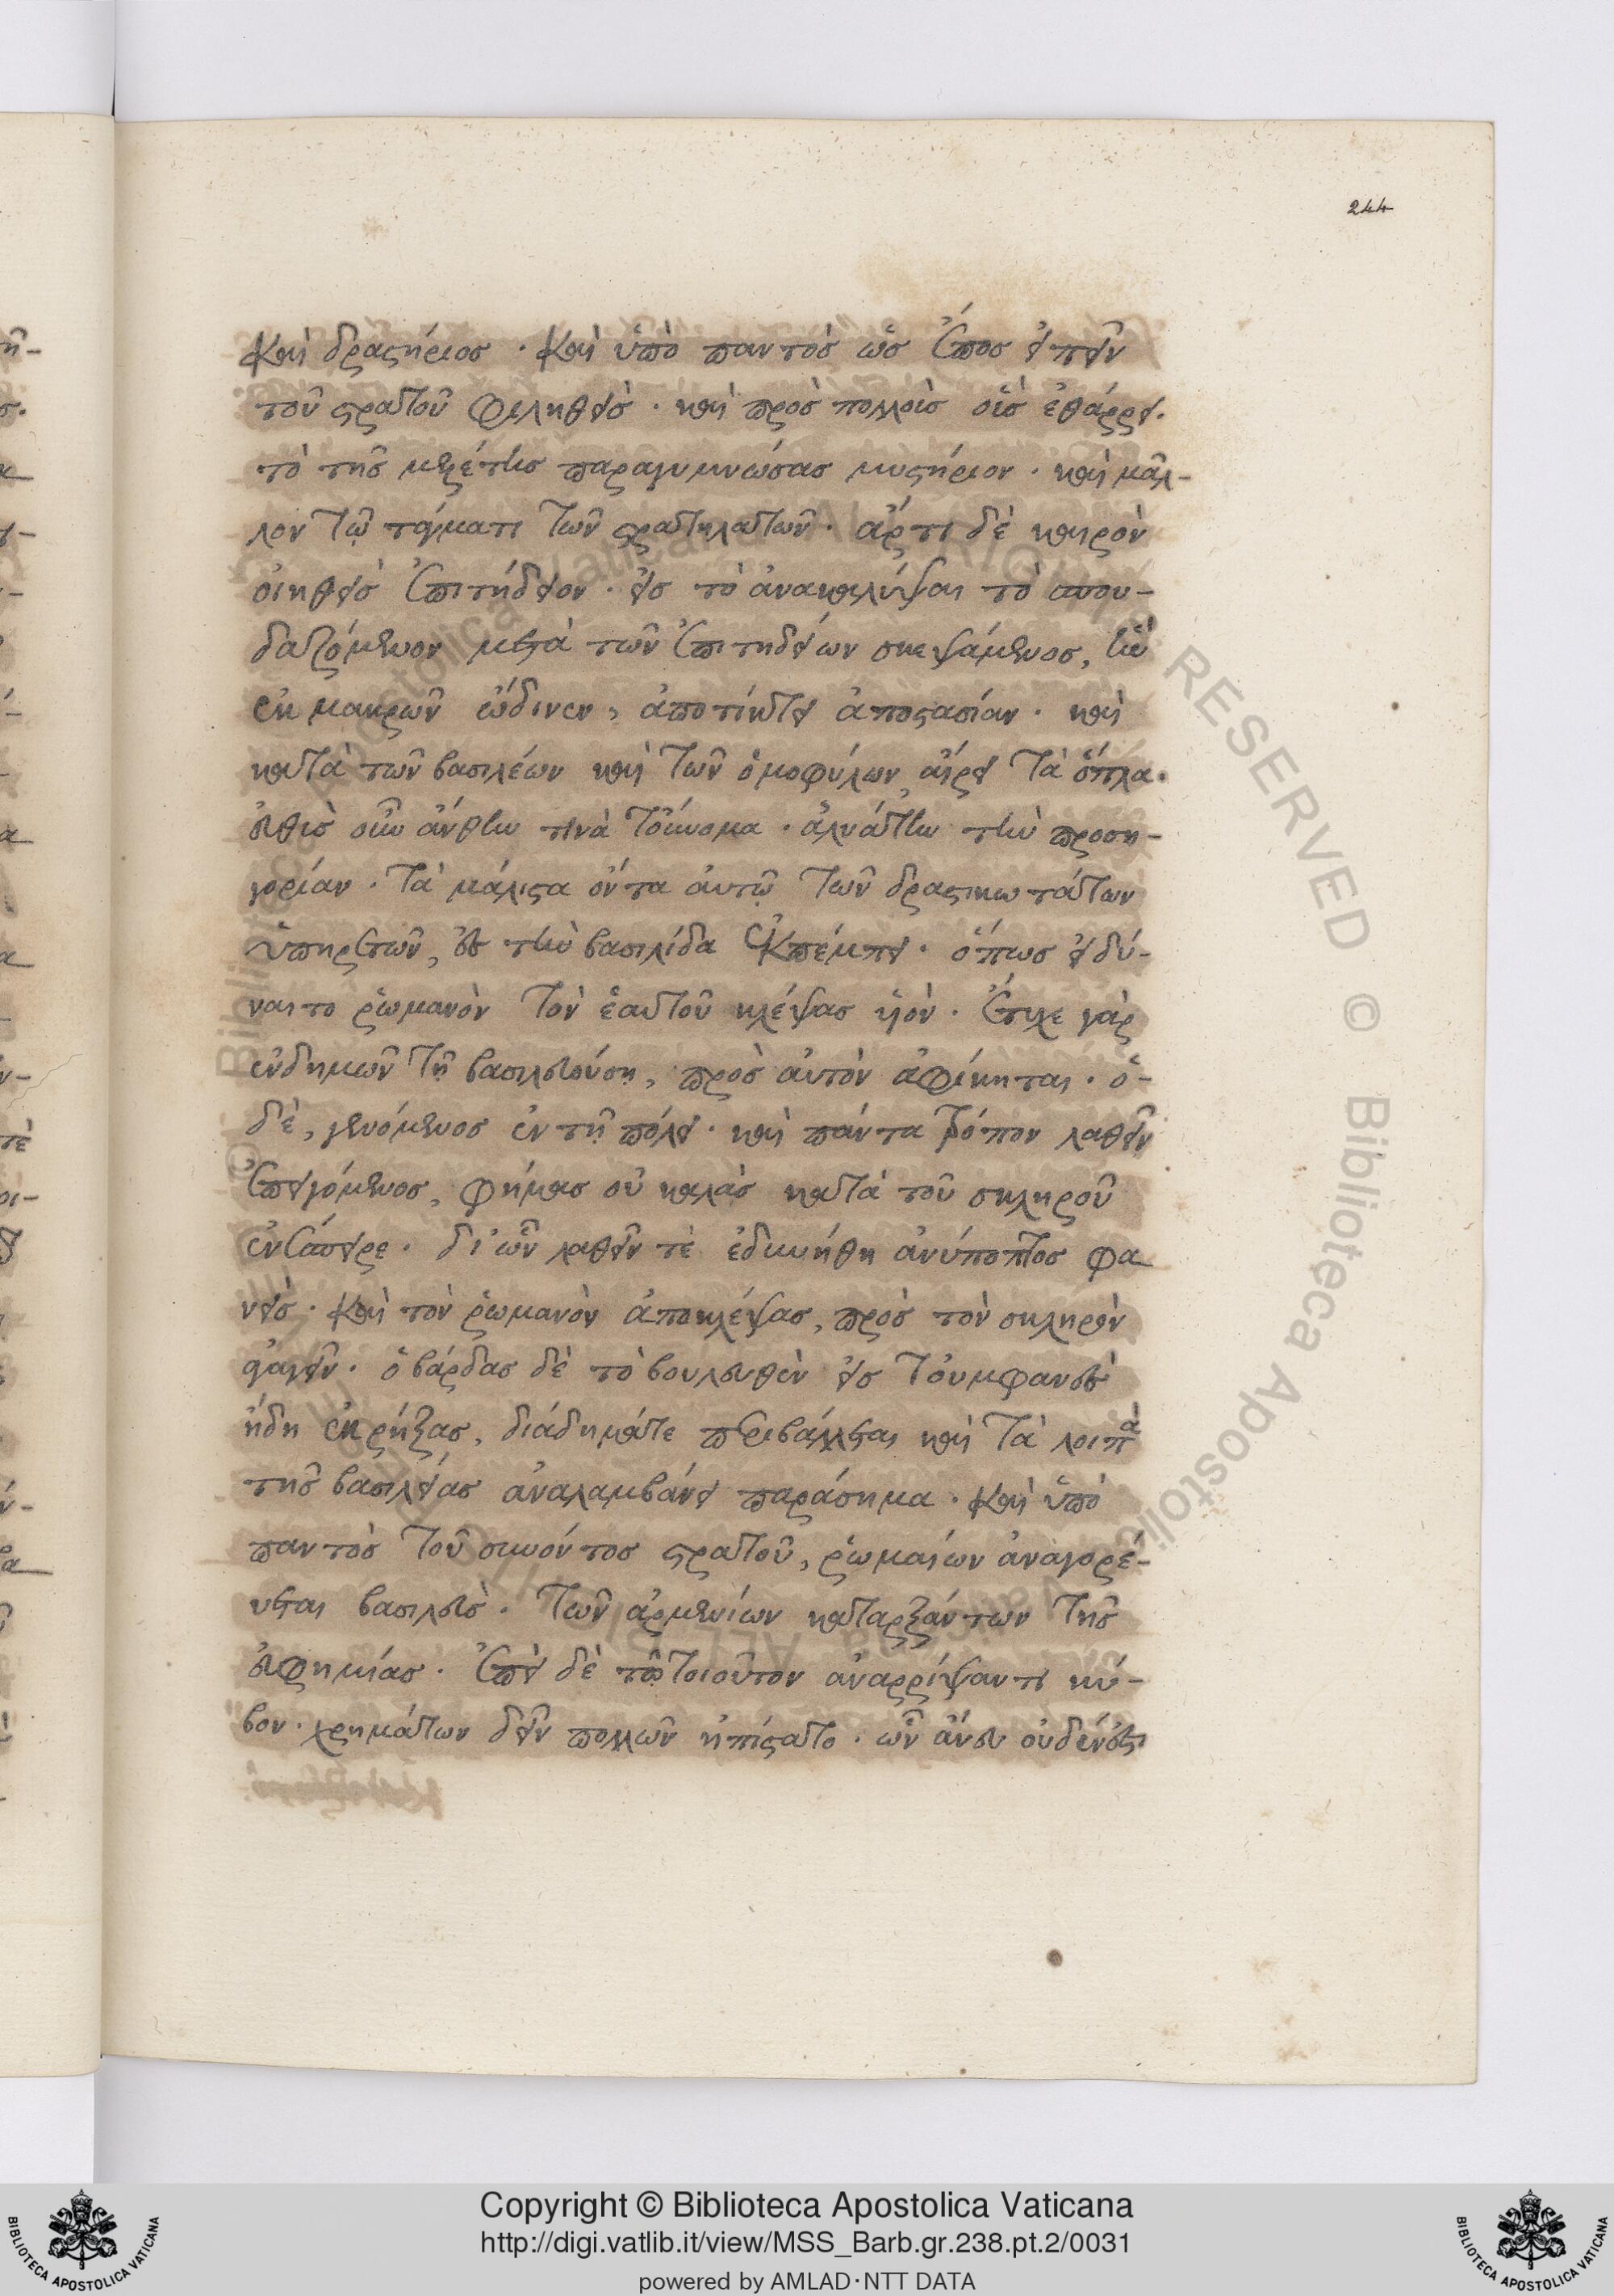 244
καὶ δραστήριος · καὶ ὑπὸ παντὸς ὡς ἔπος εἰπεῖν
τοῦ στρατοῦ φιληθεὶς · καὶ πρὸς πολλοῖς οἷς ἐθάρρει·
τὸ τῆς μελέτης παραγυμνώσας μυστήριον · καὶ μᾶλ-
λον τῷ τάγματι τῶν στρατηλατῶν · ἄρτι δὲ καιρὸν
οἰηθεὶς ἐπιτήδειον · εἰς τὸ ἀνακαλύψαι τὸ σπου-
δαζόμενον μετὰ τῶν ἐπιτηδείων σκεψάμενος, ἣν
ἐκ μακρῶν ὤδινεν, ἀποτίκτει ἀποστασίαν · καὶ
κατὰ τῶν βασιλέων καὶ τῶν ὁμοφύλων αἴρει τὰ ὅπλα·
εὐθὺς οὖν ἄνθην τινὰ τοὔνομα · ἀλυάτην τὴν προση-
γορίαν · τὰ μάλιστα ὄντα αὐτῷ τῶν δραστικωτάτων
ὑπηρετῶν, εἰς τὴν βασιλίδα ἐκπέμπει · ὅπως εἰ δύ-
ναιτο ῥωμανὸν τὸν ἑαυτοῦ κλέψας υἱόν · ἔτυχε γὰρ
ἐνδημῶν τῇ βασιλευούσῃ, πρὸς αὐτὸν ἀφίκηται · ὁ-
δὲ, γενόμενος ἐν τῇ πόλει · καὶ πάντα τρόπον λαθεῖν
ἐπειγόμενος, φήμας οὐ καλὰς κατὰ τοῦ σκληροῦ
ἐνέσπειρε · δι' ὧν λαθεῖν τὲ ἐδυνήθη ἀνύποπτος φα
νεὶς · καὶ τὸν ῥωμανὸν ἀποκλέψας, πρὸς τὸν σκληρὸν
ἀγαγεῖν · ὁ βάρδας δὲ τὸ βουλευθὲν εἰς τοὐμφανὲς
ἤδη ἐκρήξας, διάδημάτε περιβάλλεται καὶ τὰ λοιπὰ
τῆς βασιλείας ἀναλαμβάνει παράσημα · καὶ ὑπὸ
παντὸς τοῦ συνόντος στρατοῦ, ῥωμαίων ἀναγορε-
ύεται βασιλεὺς · τῶν ἀρμενίων καταρξάντων τῆς
εὐφημίας · ἐπεὶ δὲ τῷ τοιοῦτον ἀναρρίψαντι κύ-
βον · χρημάτων δεῖν πολλῶν ἠπίστατο · ὧν ἄνευ οὐδέν ἐστι
Copyright © Biblioteca Apostolica Vaticana
http://digi.vatlib.it/view/MSS_Barb.gr.238.pt.2/0031
powered by AMLAD·NTT DATA